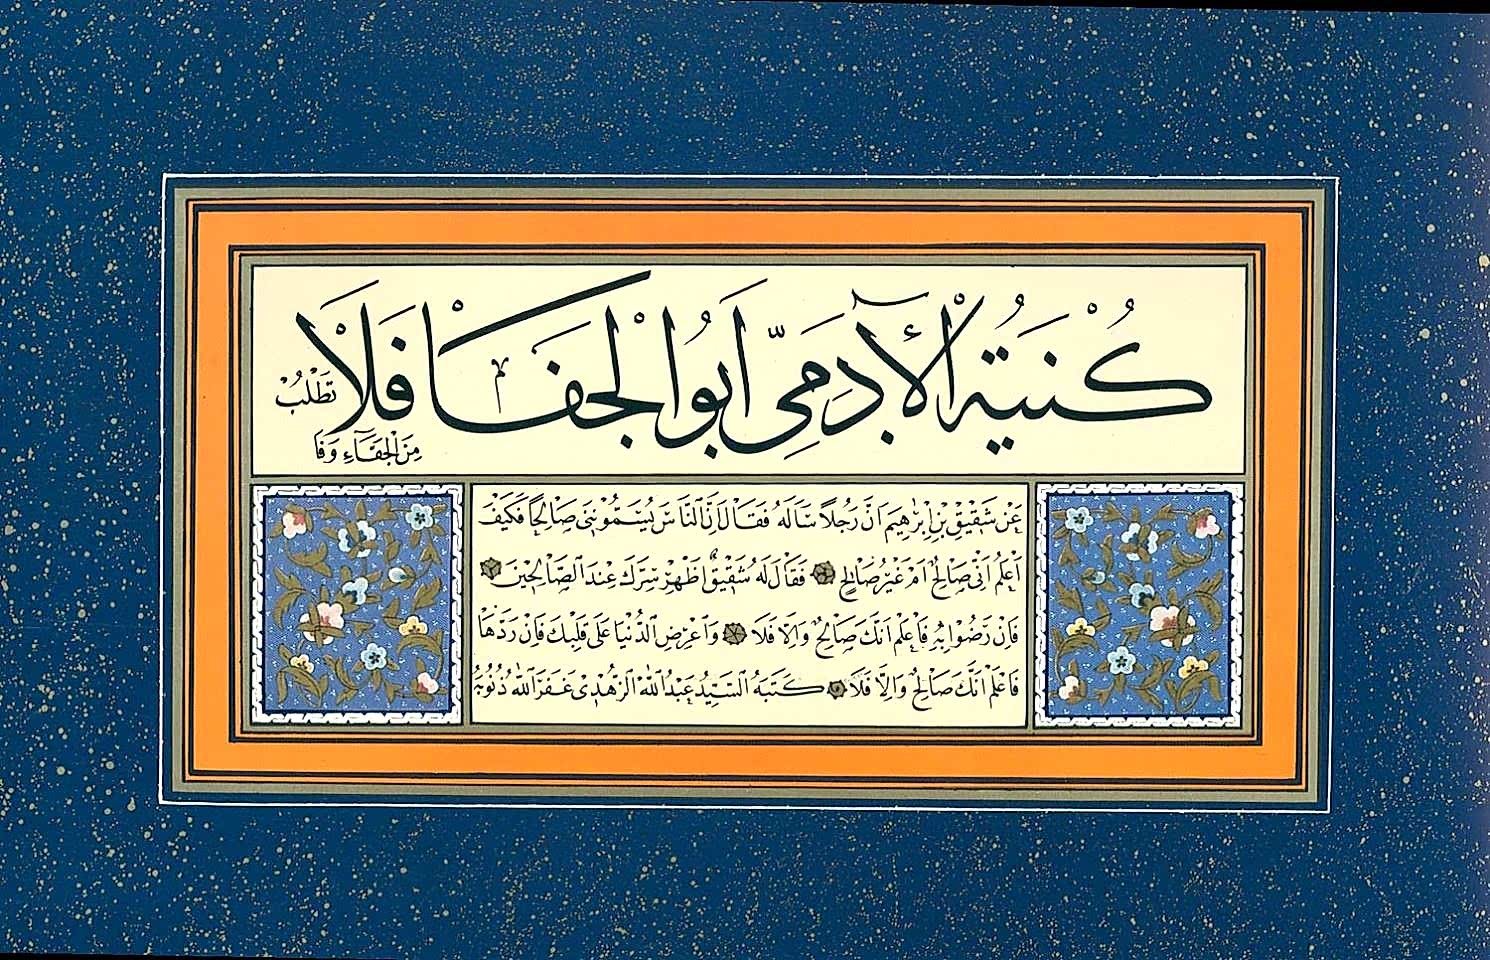 كُنْيَةُ الْآدَمِيِّ أَبُو الْجَفَا فَلَا تَطْلُبْ
مِنَ الْجَفَاءِ وَفَا
عَنْ شَقِيقِ بْنِ إِبْرَاهِيمَ أَنَّ رَجُلًا سَأَلَهُ فَقَالَ إِنَّ النَّاسَ يُسَمُّونَنِي صَالِحًا فَكَيْفَ
أَعْلَمُ أَنِّي صَالِحٌ أَمْ غَيْرُ صَالِحٍ فَقَالَ لَهُ شَقِيقٌ أَظْهِرْ سِرَّكَ عِنْدَ الصَّالِحِينَ
فَإِنْ رَضُوا بِهِ فَاعْلَمْ أَنَّكَ صَالِحٌ وَإِلَّا فَلَا وَاعْرِضِ الدُّنْيَا عَلَى قَلْبِكَ فَإِنْ رَدَّهَا
فَاعْلَمْ أَنَّكَ صَالِحٌ وَإِلَّا فَلَا كَتَبَهُ السَّيِّدُ عَبْدُ اللَّهِ الزُّهْدِي غَفَرَ اللَّهُ ذُنُوبَهُ